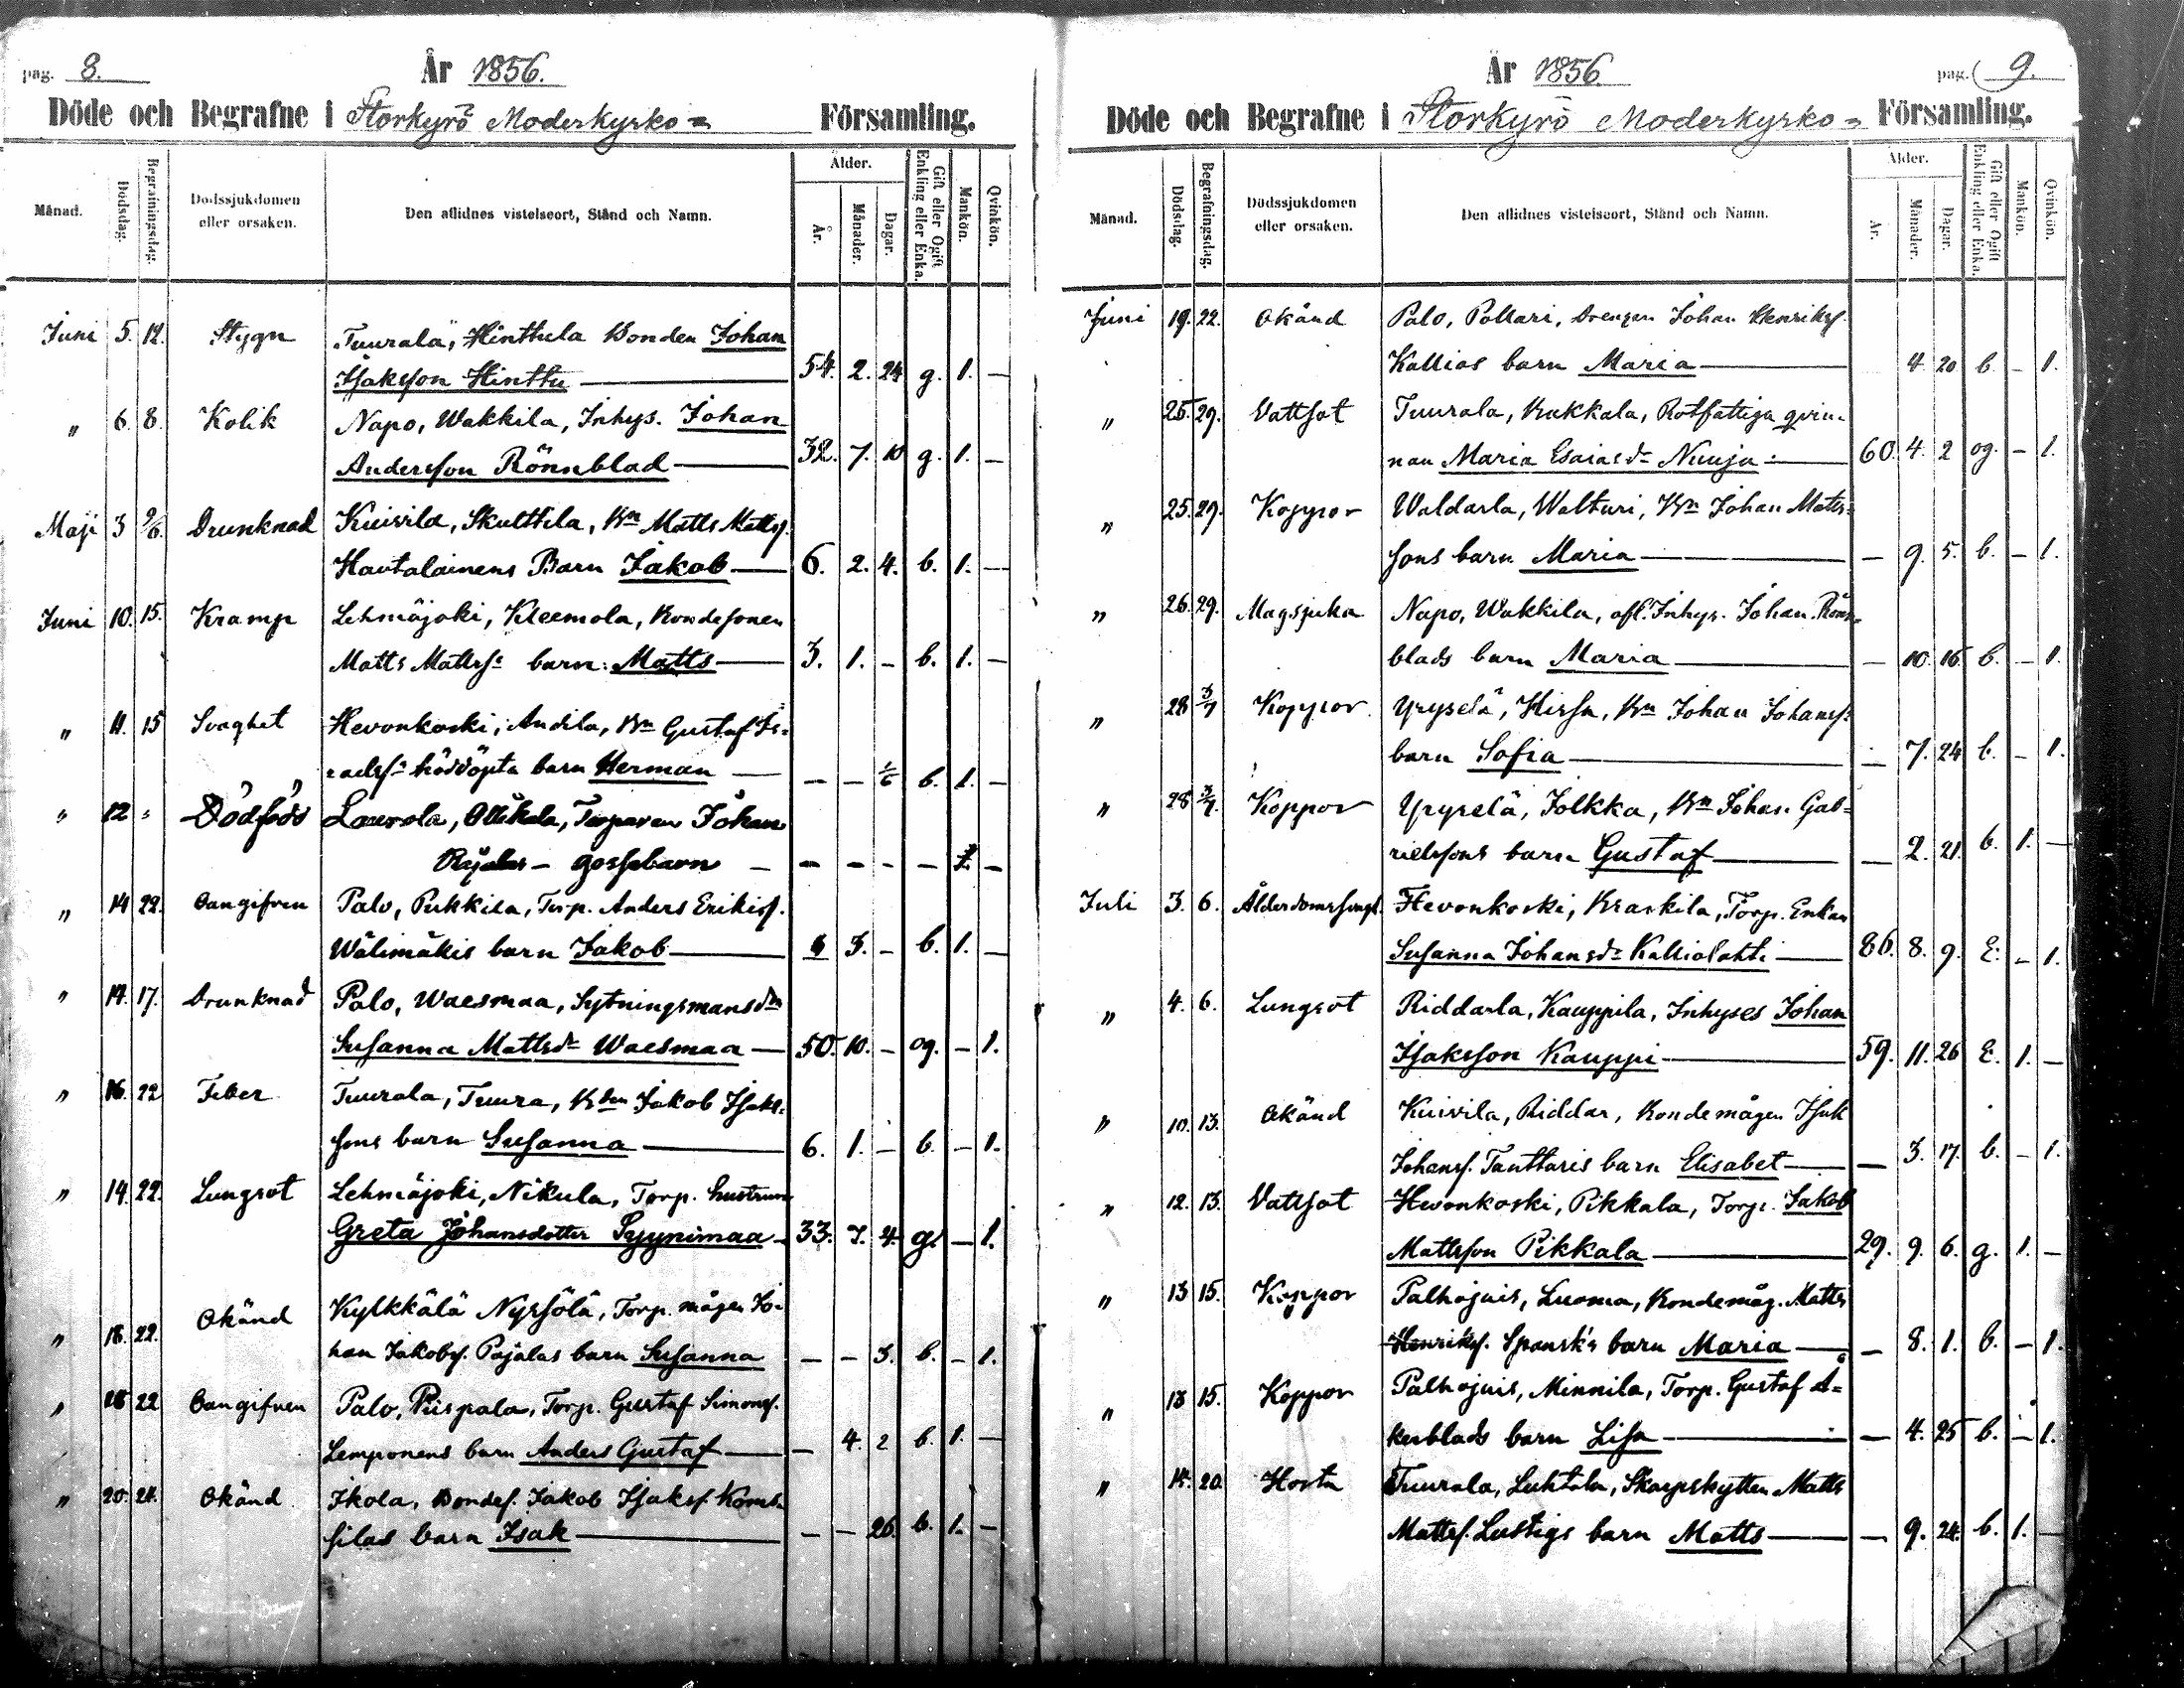 pag. 8. År 1856.
Döde och Begrafne i Storkyrö Moderkyrko= Församling.
Månad. Dödsdag. Begrafningsdag. Dödssjukdomen eller orsaken. Den aflidnes vistelseort, Stånd och Namn. Ålder. År. Månader. Dagar. Gift eller Ogift Enkling eller Enka. Mankön. Qvinkön.
Juni 5. 12. Stygn Tuurala, Hinthula Bonden Johan
Isaksson Hinttu 54. 2. 24 g. 1. —
„ 6. 8. Kolik Napo, Wakkila, Inhys. Johan
Andersson Rönnblad 32. 7. 10 g. 1. —
Maji 3 9/6. Drunknad Kuivila, Skulttila, Bn Matts Mattsf.
Hautalainens Barn Jakob 6. 2. 4. b. 1. —
Juni 10. 15. Kramp Lehmäjoki, Kleemola, Bondesonen
Matts Mattss: barn: Matts 3. 1. – b. 1. —
„ 11. 15 Svaghet Hevonkoski, Andila, Bn Gustaf Is=
raelss: nöddöpta barn Herman — — 1/6 b. 1. —
„ 12 „ Dödföds Laurola, Ollikala, Torparen Johan
Rajalas – gossebarn — — — — — 1. —
„ 14 22. Oangifven Palo, Pukkila, Torp. Anders Erikss.
Wälimäkis barn Jakob 3. – b. 1. —
„ 14. 17. Drunknad Palo, Waesmaa, Sytningsmansdn
Susanna Mattsd: Waesmaa 50. 10. – og. – 1.
„ 16. 22 Feber Tuurala, Tuura, Bden Jakob Isaks=
sons barn Susanna 6. 1. – b – 1.
„ 14. 22. Lungsot Lehmäjoki, Nikula, Torp. hustrun
Greta Johansdotter Syynimaa 33. 7. 4. g. — 1.
Okänd Kylkkälä Nyrsölä, Torp. mågen Jo-
„ 18. 22. han Jakobs. Pajalas barn Susanna — – 3. b. – 1.
„ 18 22 Oangifven Palo, Piispala, Torp. Gustaf Simonss.
Lemponens barn Anders Gustaf — 4. 2 b. 1. —
„ 20. 24. Okänd Ikola, Bondes. Jakob Isakss.
silas barn Isak — — 26. b. 1. —
År 1856 pag. 9.
Döde och Begrafne i Storkyrö Moderkyrko= Församling.
Månad. Dödsdag. Begrafningsdag. Dödssjukdomen eller orsaken. Den aflidnes vistelseort, Stånd och Namn. Ålder. År. Månader. Dagar. Gift eller Ogift Enkling eller Enka. Mankön. Qvinkön.
Juni 19. 22. Okänd Palo, Pollari, Drengen Johan Henrikss.
Kallios barn Maria 4 20 b. – 1.
„ 25. 29. Vattsot Tuurala, Kukkala, Rotfattiga qvin-
nan Maria Esaiasd: Nuuja 60. 4. 2 og. – 1.
„ 25. 29. Koppor Waldarla, Walturi, Bn Johan Matts=
sons barn Maria — 9. 5. b. – 1.
„ 26. 29. Magsjuka Napo, Wakkila, afl. Inhys. Johan Rönn=
blads barn Maria — 10. 16. b. – 1.
„ 28 3/7 Koppor Yryselä, Hirsu, Bn Johan Johanss:
barn Sofia — 7. 24 b. – 1.
„ 28 3/7. Koppor Yryselä, Jolkka, Bn Johan Gab=
rielssons barn Gustaf — 2. 21. b. 1. —
Juli 3. 6. Ålderdomssvagh. Hevonkoski, Kraskila, Torp. Enkan
Susanna Johansd: Kalliolahti 86. 8. 9. E. – 1.
„ 4. 6. Lungsot Riddarla, Kauppila, Inhyses Johan
Isaksson Kauppi 59. 11. 26 E. 1. —
„ 10. 13. Okänd Kuivila, Riddar, Bondemågen Isak
Johanss. Tanttaris barn Elisabet — 3. 17. b. – 1.
„ 12. 13. Vattsot Hevonkoski, Pikkala, Torp. Jakob
Mattsson Pikkala 29. 9. 6. g. 1. —
„ 13 15. Koppor Palhojais, Luoma, Bondemåg. Matts
Henrikss. Spansk's barn Maria — 8. 1. b. – 1.
„ 13 15. Koppor Palhojais, Minnila, Torp. Gustaf Å=
kerblads barn Lisa — 4. 25 b. – 1.
„ 14. 20. Hosta Tuurala, Luhtala, Skarpskytten Matts
Mattss. Lustigs barn Matts — 9. 24. b. 1. —